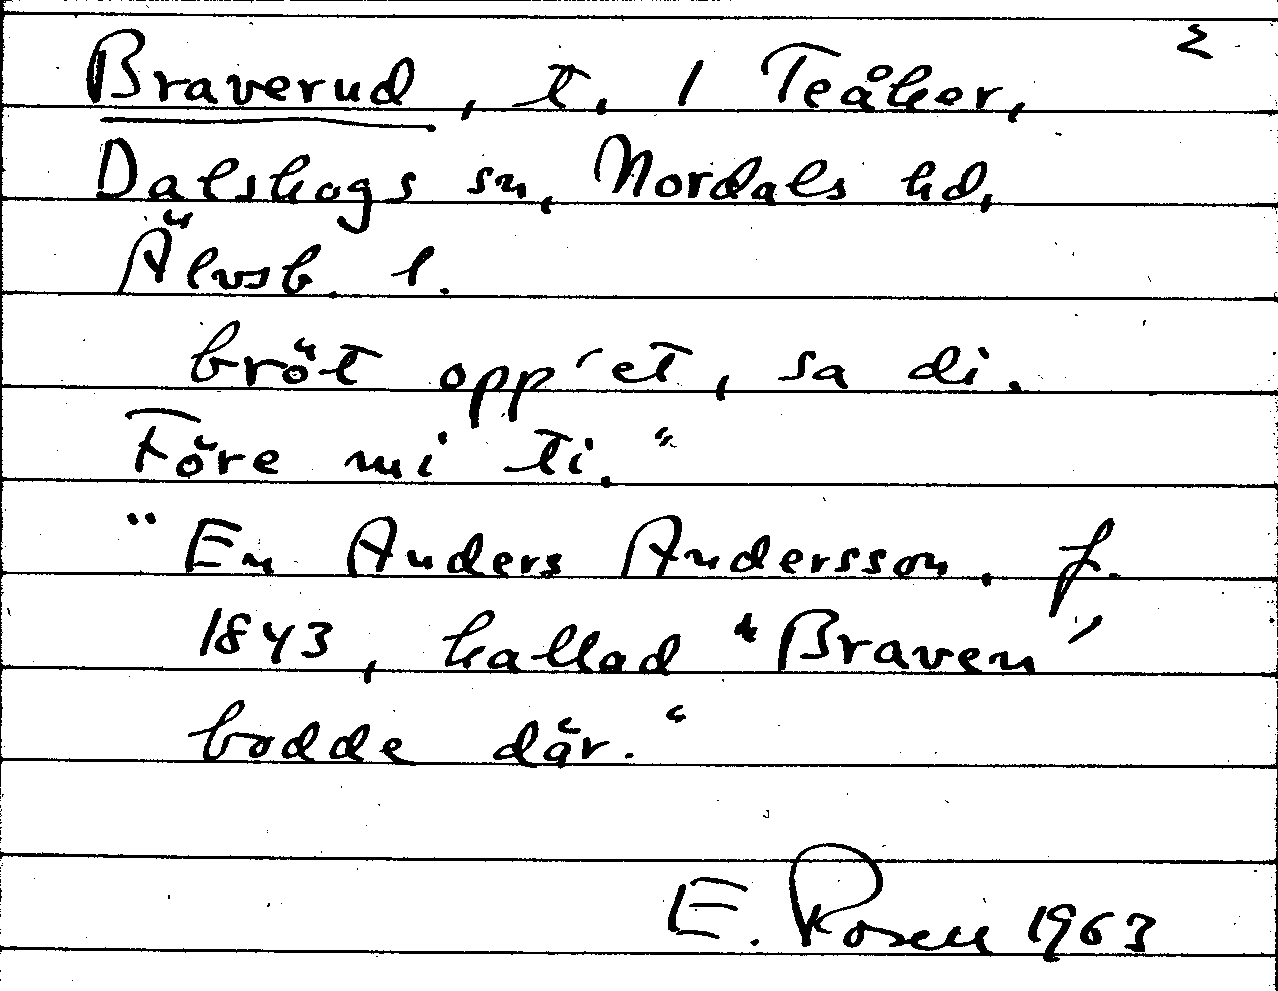 2
Braverud, t. 1 Teåker,
Dalskogs sn, Nordals hd,
Älvsb. l.
bröt opp'et, sa di.
Före mi ti."
"En Anders Andersson, f.
1843, kallad "Braven"
bodde där."
E. Rosen 1963